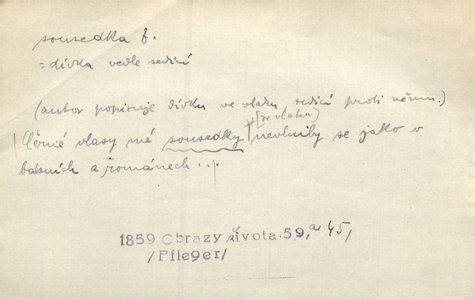 sousedka f.
= dívka vedle sedící
(autor popisuje dívku ve vlaku sedící proti němu.)
(ve vlaku)
Černé vlasy mé sousedky nevlnily se jako v
básních a románech...
1859 Obrazy života.59, a 45,
/Pfleger/